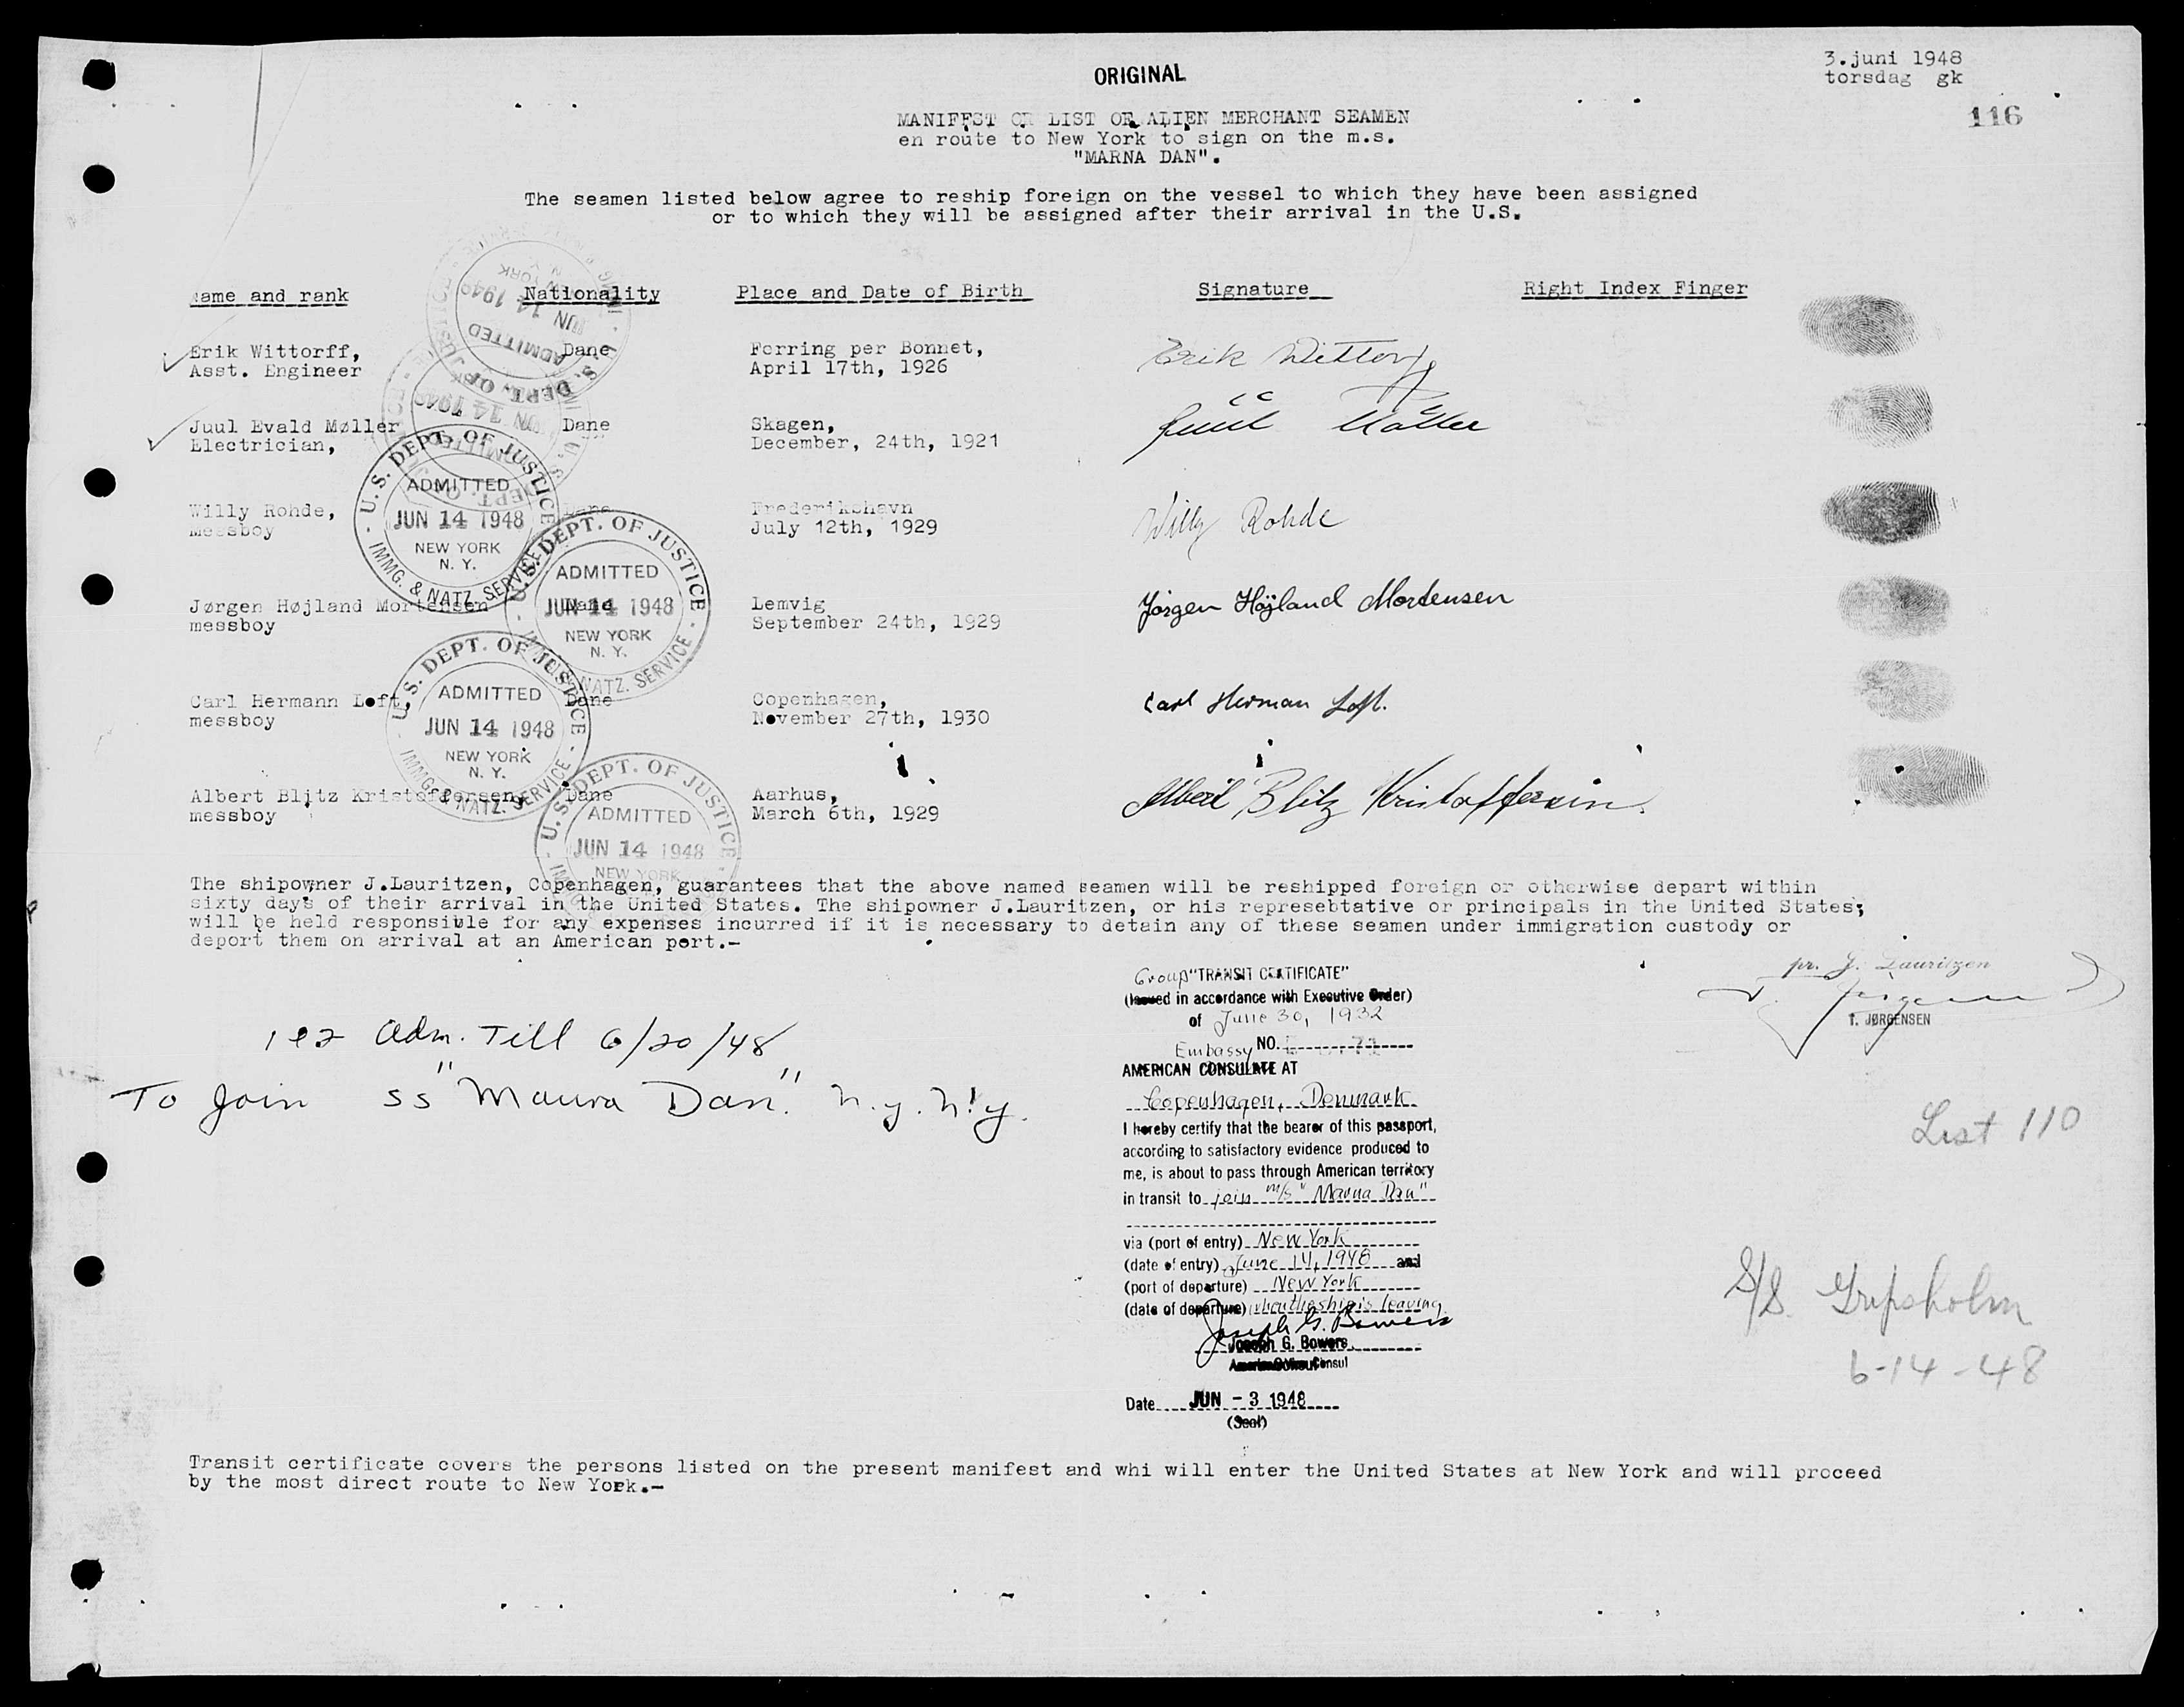 3.juni 1948
torsdag gk
ORIGINAL
116
MANIFEST OR LIST OF ALIEN MERCHANT SEAMEN
en route to New York to sign on the m.s.
"MARNA DAN".
The seamen listed below agree to reship foreign on the vessel to which they have been assigned
or to which they will be assigned after their arrival in the U.S.
ame and rank Nationality Place and Date of Birth Signature Right Index Finger
Erik Wittorff, Dane Ferring per Bonnet, Erik Wittorff
Asst. Engineer April 17th, 1926
Juul Evald Møller Dane Skagen, Juul Møller
Electrician, December, 24th, 1921
Willy Rohde, Dane Frederikshavn Willy Rohde
messboy July 12th, 1929
Jørgen Højland Mortensen Dane Lemvig Jörgen Höjland Mortensen
messboy September 24th, 1929
Carl Hermann Loft, Dane Copenhagen, Carl Herman Loft.
messboy November 27th, 1930
Albert Blitz Kristoffersen, Dane Aarhus, Albert Blitz Kristoffersen.
messboy March 6th, 1929
U.S. DEPT. OF JUSTICE
ADMITTED
JUN 14 1948
NEW YORK
N. Y.
IMMG. & NATZ. SERVICE
U.S. DEPT. OF JUSTICE
ADMITTED
JUN 14 1948
NEW YORK
N. Y.
NATZ. SERVICE
U.S. DEPT. OF JUSTICE
ADMITTED
JUN 14 1948
NEW YORK
N. Y.
IMMG. & NATZ. SERVICE
U.S. DEPT. OF JUSTICE
ADMITTED
JUN 14 1948
NEW YORK
ADMITTED
JUN 14 1948
The shipowner J.Lauritzen, Copenhagen, guarantees that the above named seamen will be reshipped foreign or otherwise depart within
sixty days of their arrival in the United States. The shipowner J.Lauritzen, or his represebtative or principals in the United States;
will be held responsible for any expenses incurred if it is necessary to detain any of these seamen under immigration custody or
deport them on arrival at an American port.-
pr. J. Lauritzen
T. JØRGENSEN
1 e 2 Adm. Till 6/20/48
To Join SS "Maura Dan." N.Y. N.Y.
Group "TRANSIT CERTIFICATE"
(Issued in accordance with Executive Order)
of June 30, 1932
Embassy NO.
AMERICAN CONSULATE AT
Copenhagen, Denmark
I hereby certify that the bearer of this passport,
according to satisfactory evidence produced to
me, is about to pass through American territory
in transit to join m/s "Marna Dan"
via (port of entry) New York
(date of entry) June 14, 1948 and
(port of departure) New York
(date of departure) when the ship is leaving
Joseph G. Bowers
Joseph G. Bowers
Date JUN - 3 1948
(Seal)
List 110
S/S. Gripsholm
6-14-48
Transit certificate covers the persons listed on the present manifest and whi will enter the United States at New York and will proceed
by the most direct route to New York.-